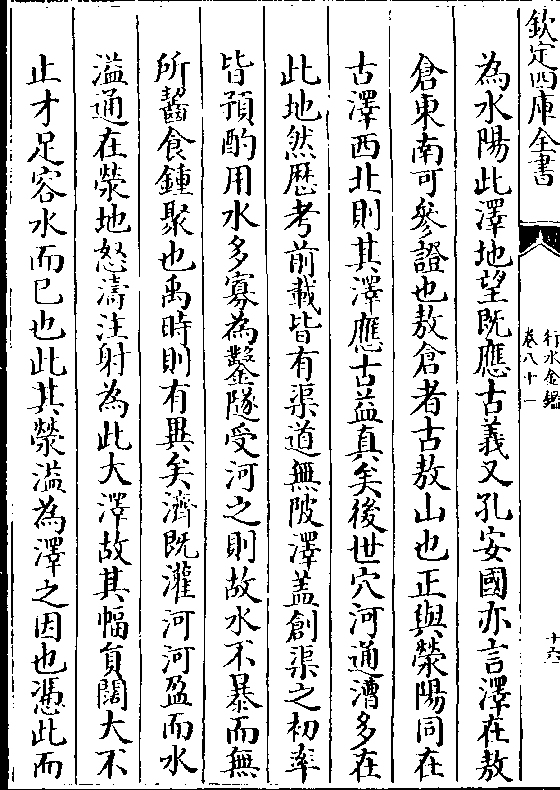 欽定四庫全書
行水金鑑
卷八十一
十六
為水陽此澤地望既應古義又孔安國亦言澤在敖
倉東南可參證也敖倉者古敖山也正與滎陽同在
古澤西北則其澤應古益真矣後世穴河通漕多在
此地然歷考前載皆有渠道無陂澤蓋創渠之初率
皆預酌用水多寡為鑿隧受河之則故水不暴而無
所齧食鍾聚也禹時則有異矣濟既灌河河盈而水
溢通在滎地怒濤注射為此大澤故其幅負闊大不
止才足容水而已也此其滎溢為澤之因也憑此而